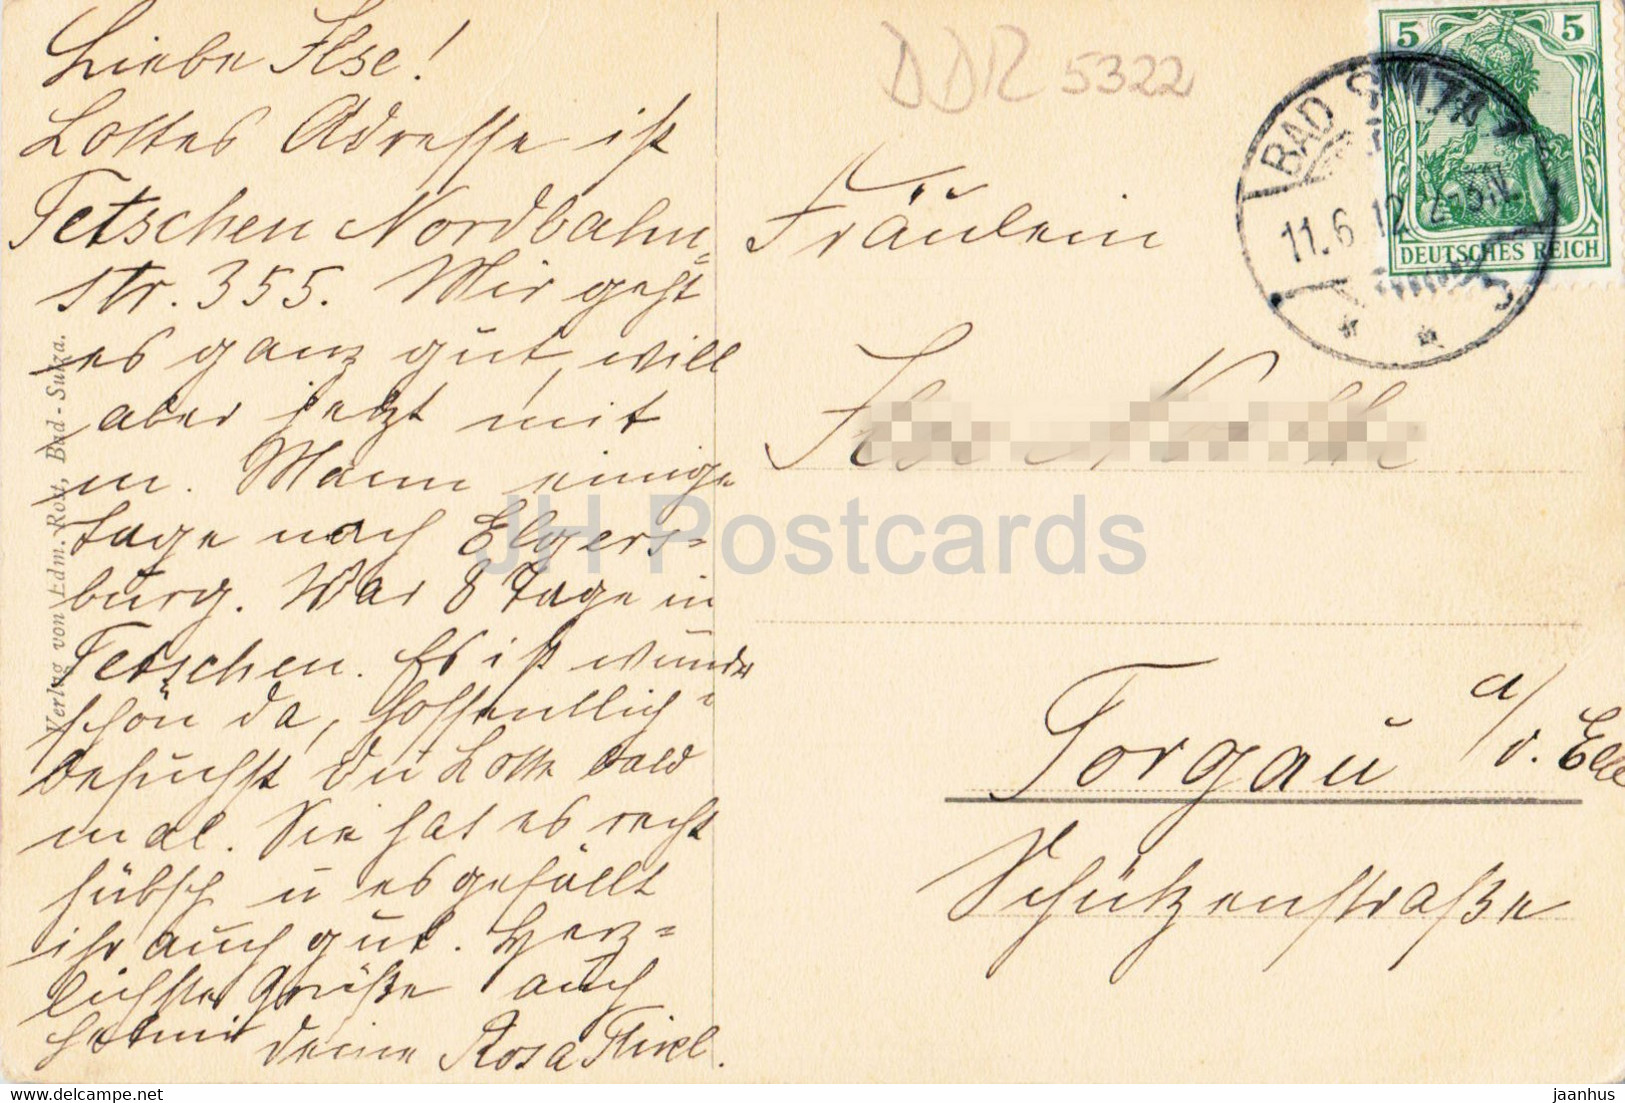 Liebe Ilse!
Lottes Adresse ist
Tetschen Nordbahn-
str. 355. Mir geht
es ganz gut, will
aber jetzt mit
m. Mann einige
Tage nach Elgers-
burg. War 8 Tage in
Tetschen. Es ist wunder
schön da, hoffentlich
besuchst Du Lotte bald
mal. Sie hat es recht
hübsch u es gefällt
ihr auch gut. Herz-
lichste Grüße auch
deine Rosa
Verlag von Edm. Rost, Bad-Sulza.
DDR 5322
5 5
DEUTSCHES REICH
BAD SULZA
11.6.12.
Fräulein
Ilse
Torgau a/d. Elbe
Schützenstraße
JH Postcards
delcampe.net
jaanhus